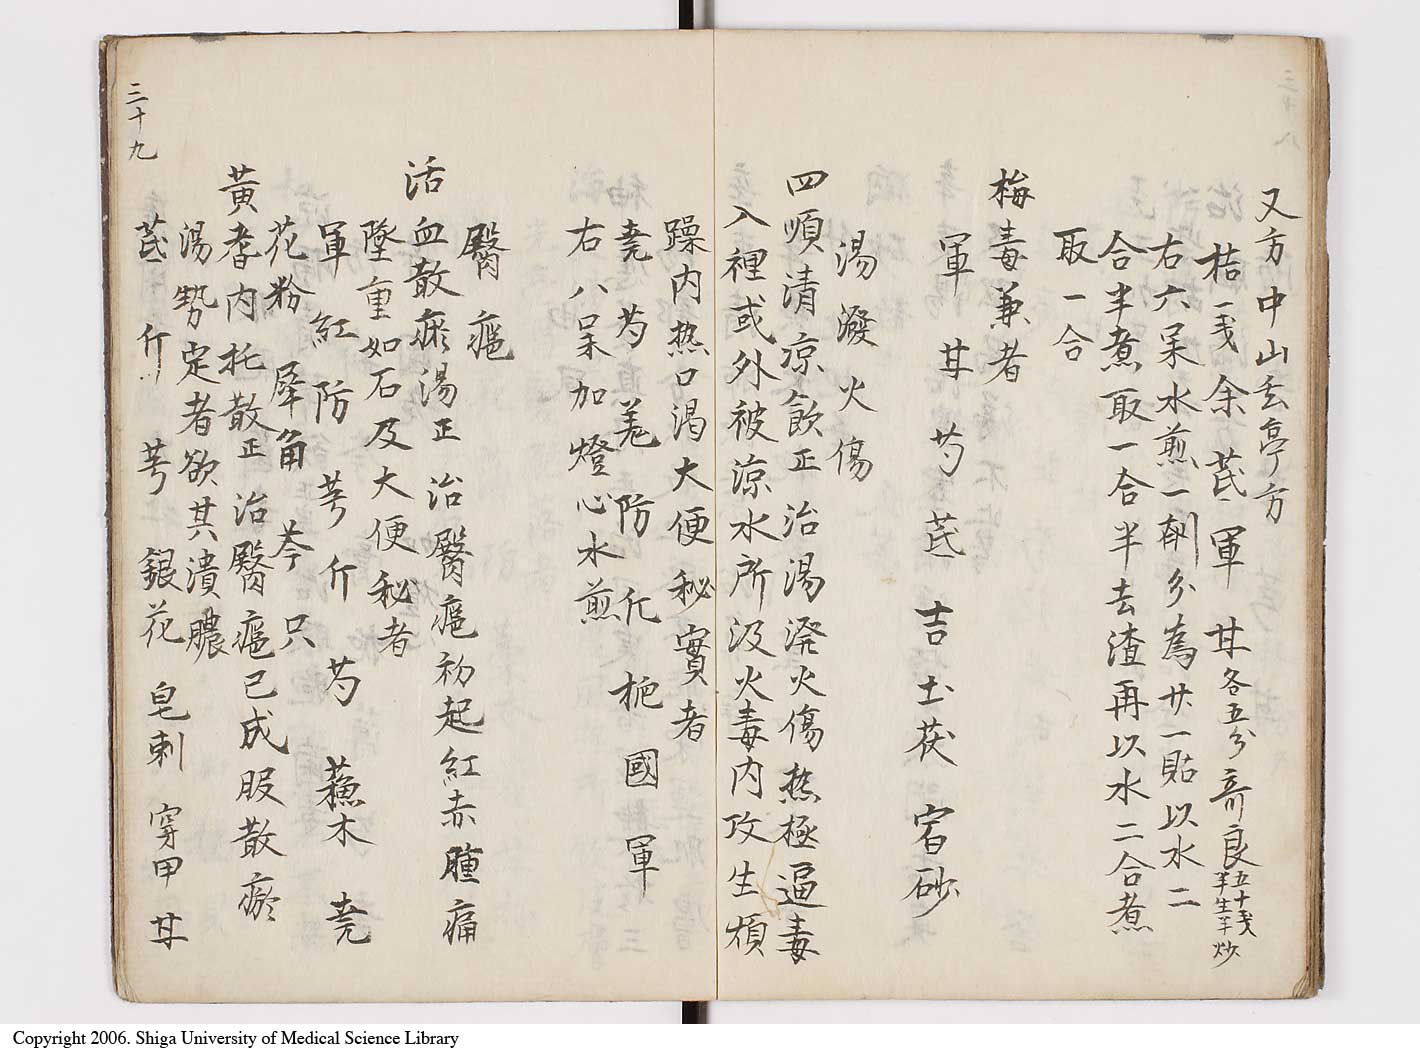 三十八
又方中山玄亭方
桔一戔余芪軍甘各五分奇良五十戔半生半炒
右六味水煎一剤分為廿一貼以水二
合半煮取一合半去渣再以水二合煮
取一合
梅毒兼者
軍 甘 芍 芪 吉 土茯 宿砂
湯潑火傷
四順清凉飲正治湯潑火傷热極逼毒
入裡或外被凉水所汲火毒内攻生煩
躁内热口渇大便秘實者
尭 芍 羗 防 仡 栀 國 軍
右八味加燈心水煎
臀癰
活血散瘀湯正治臀癰初起紅赤腫痛
墜重如石及大便秘者
軍 紅 防 芎 斤 芍 蘓木 尭
花粉 犀角 芩 只
黄耆内托散正治臀癰已成服散瘀
湯勢定者欲其潰膿
芪 斤 芎 銀花 皂刺 穿甲 甘
三十九
Copyright 2006. Shiga University of Medical Science Library